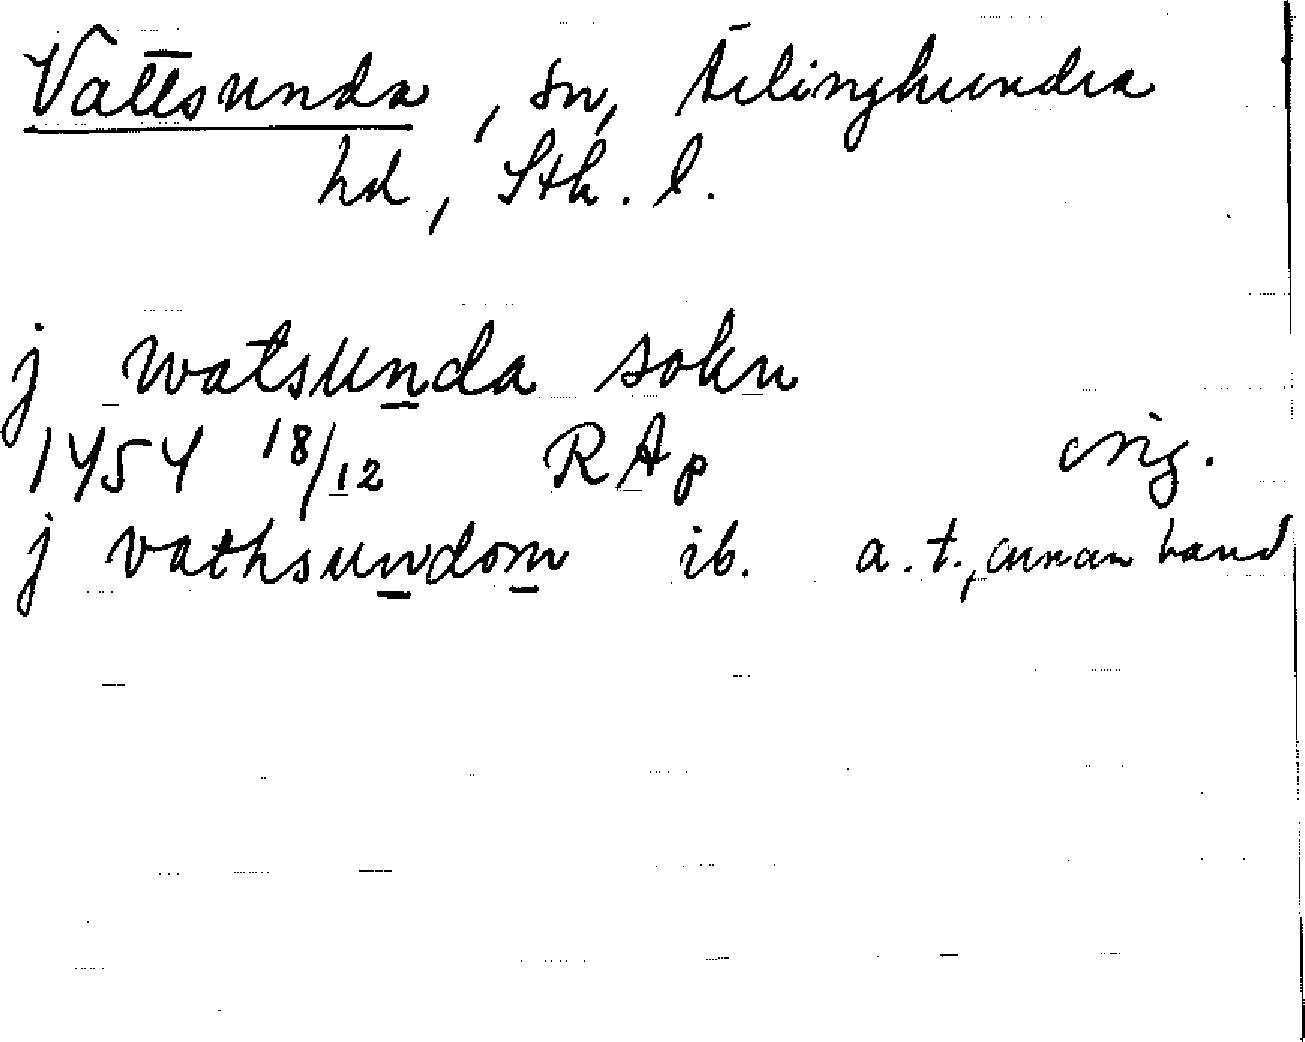 Vattsunda, sn, Ärlinghundra
hd, Sth. l.
j watsunda sokn
1454 18/12 RAp orig.
j vathsundom ib. a. t., annan hand